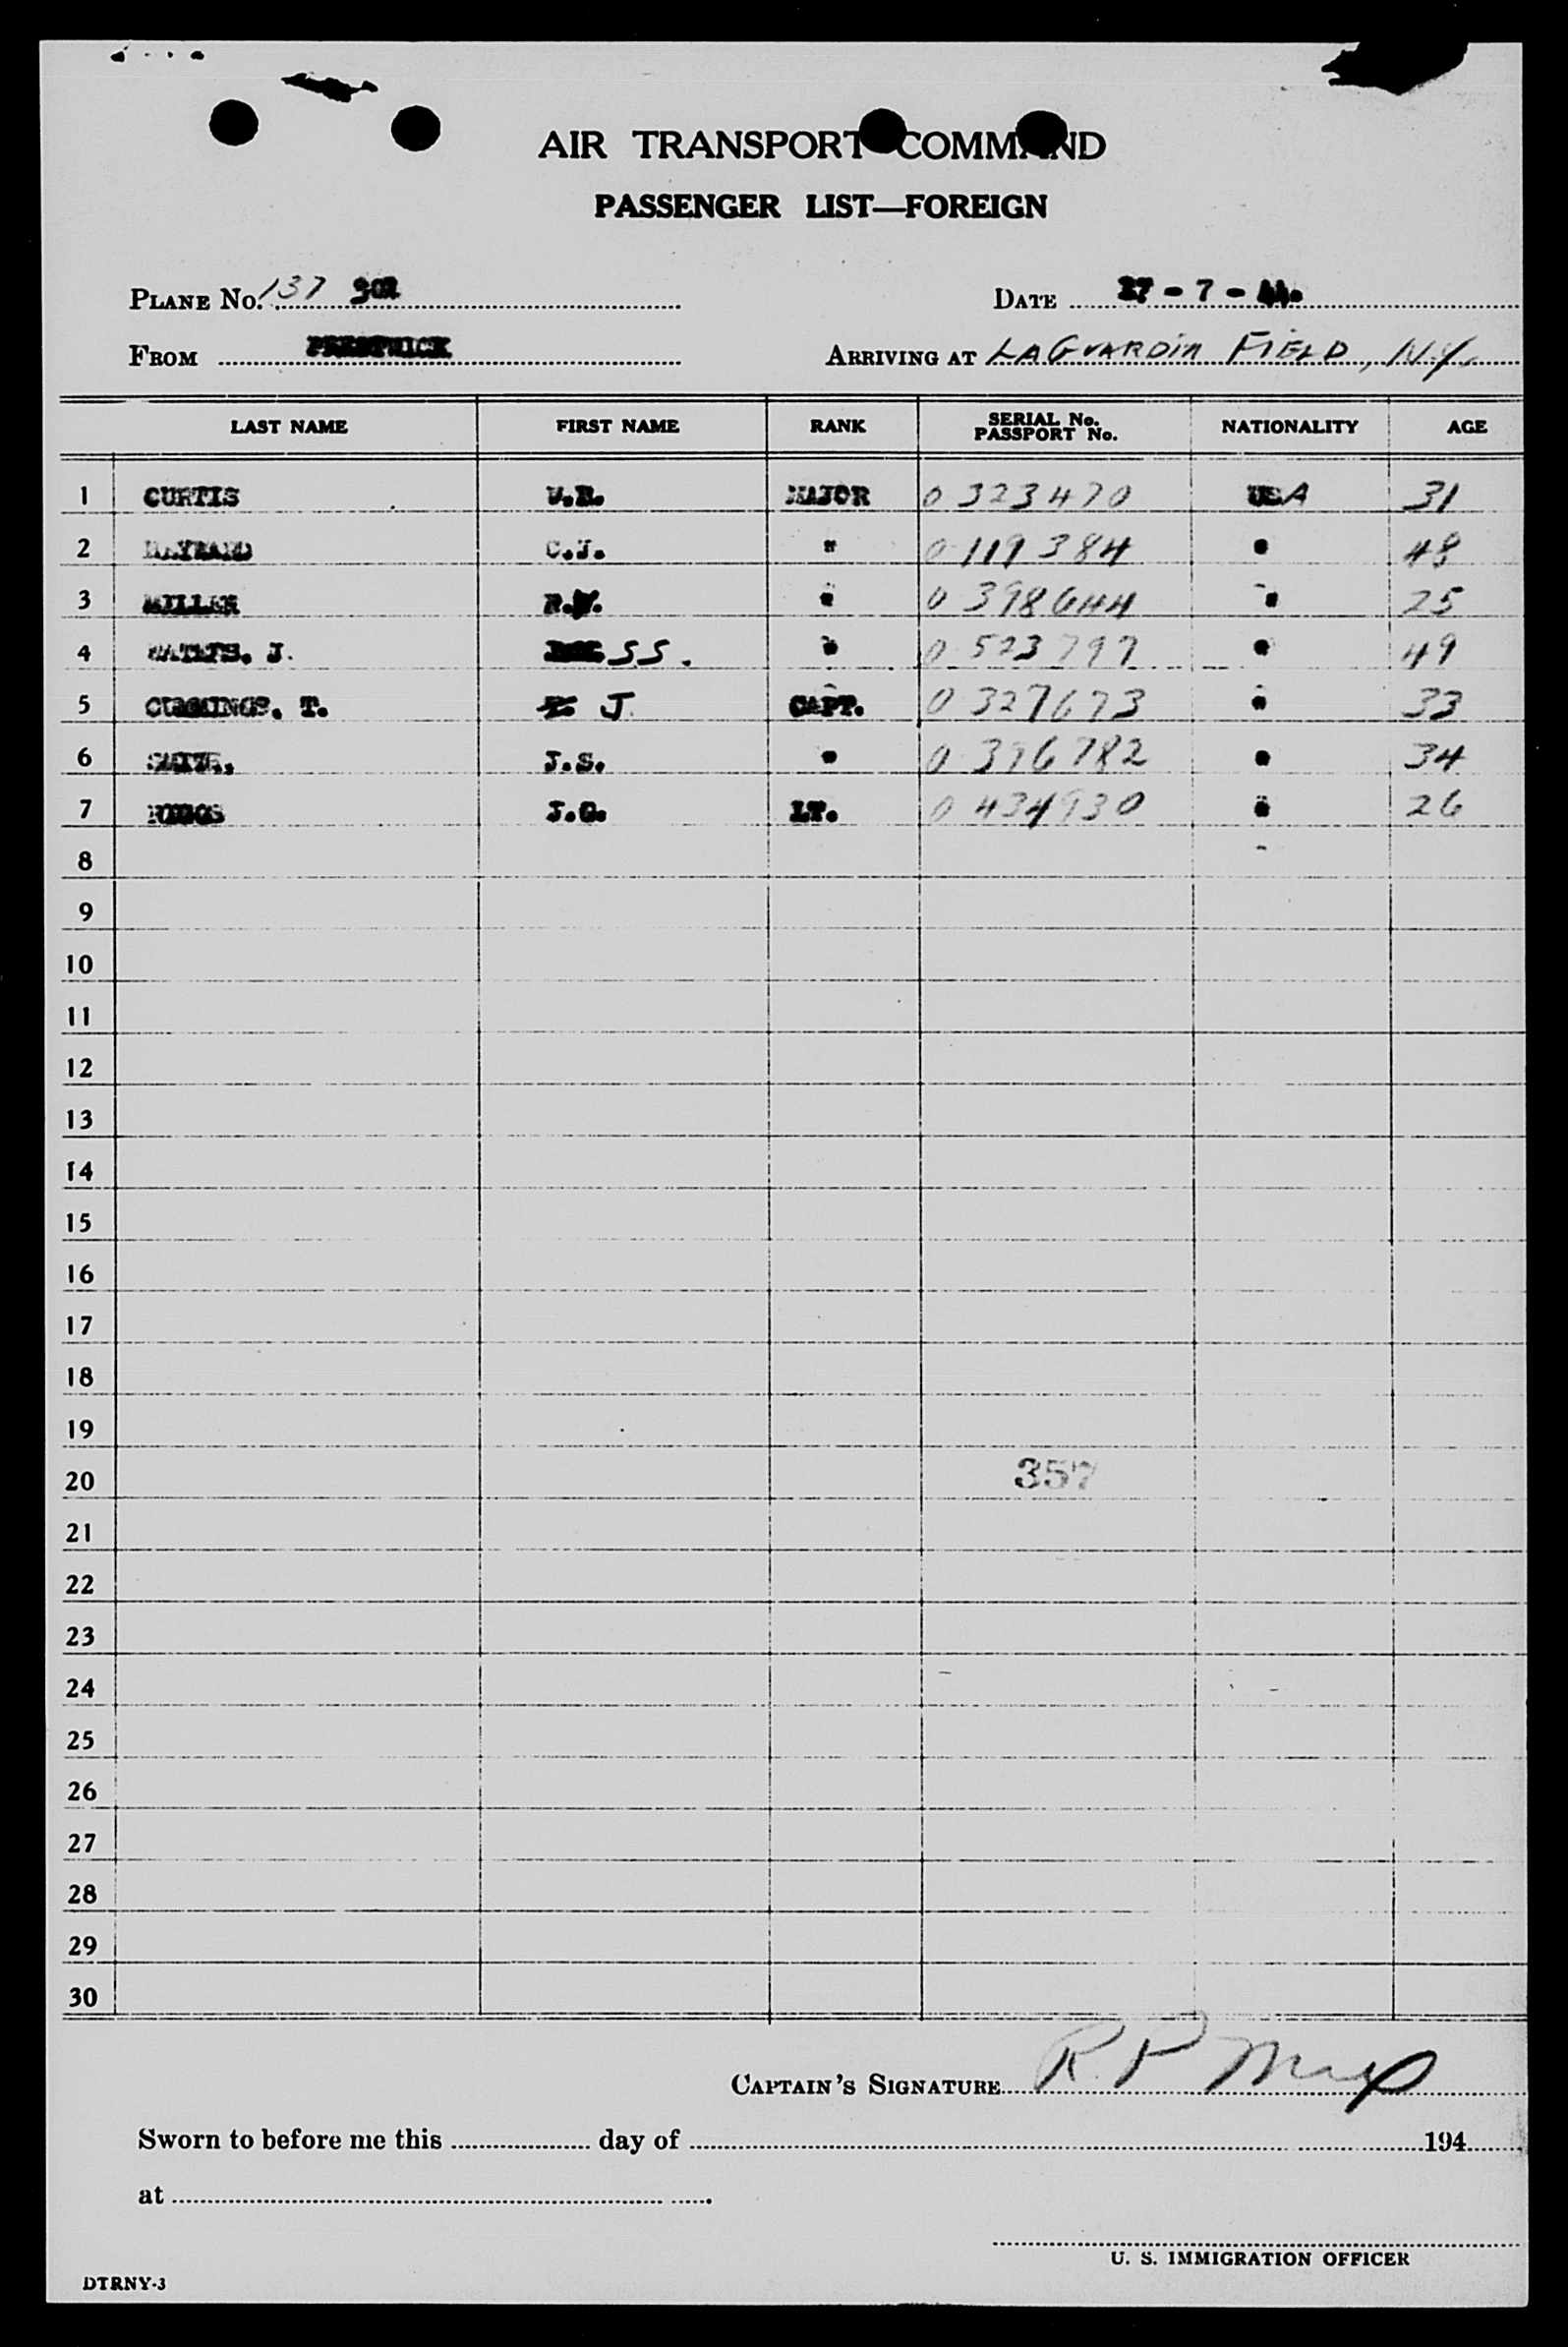 AIR TRANSPORT COMMAND
PASSENGER LIST—FOREIGN
PLANE No. 137 302 DATE 27 - 7 - 44.
FROM PRESTWICK ARRIVING AT LAGUARDIA FIELD, N.Y.
LAST NAME FIRST NAME RANK SERIAL No. PASSPORT No. NATIONALITY AGE
1 CURTIS MAJOR 0 323470 USA 31
2 C.J. " 0 119384 " 48
3 MILLER " 0 398644 " 25
4 J. SS. " 0 523797 " 49
5 CUMMINGS, T. J CAPT. 0 327673 " 33
6 J.S. " 0 396782 " 34
7 J.G. LT. 0 434930 " 26
8
9
10
11
12
13
14
15
16
17
18
19
20 357
21
22
23
24
25
26
27
28
29
30
CAPTAIN'S SIGNATURE R.P
Sworn to before me this day of 194
at .
U. S. IMMIGRATION OFFICER
DTRNY-3